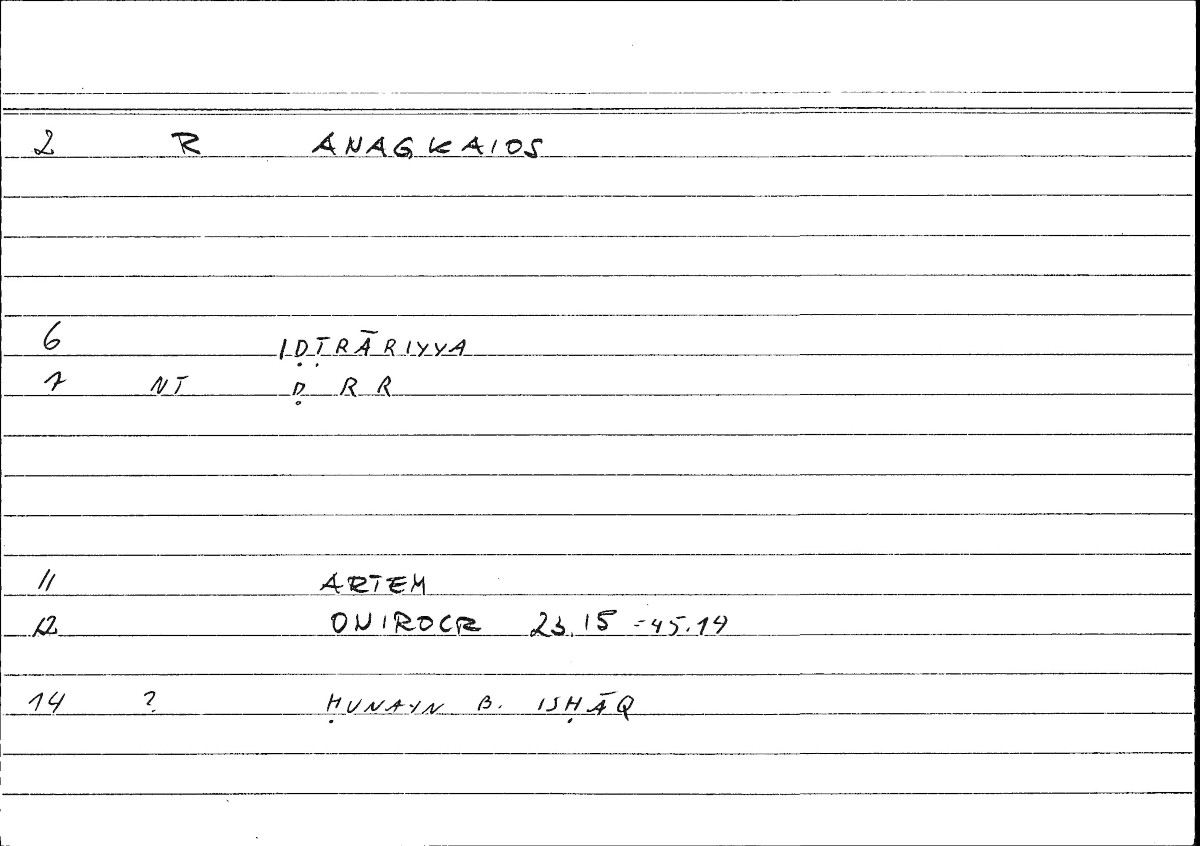 2 R ANAGKAIOS
6 IḌṬRĀRIYYA
7 NT Ḍ R R
11 ARTEM
12 ONIROCR 23.15 = 45.14
14 ? ḤUNAYN B. ISḤĀQ